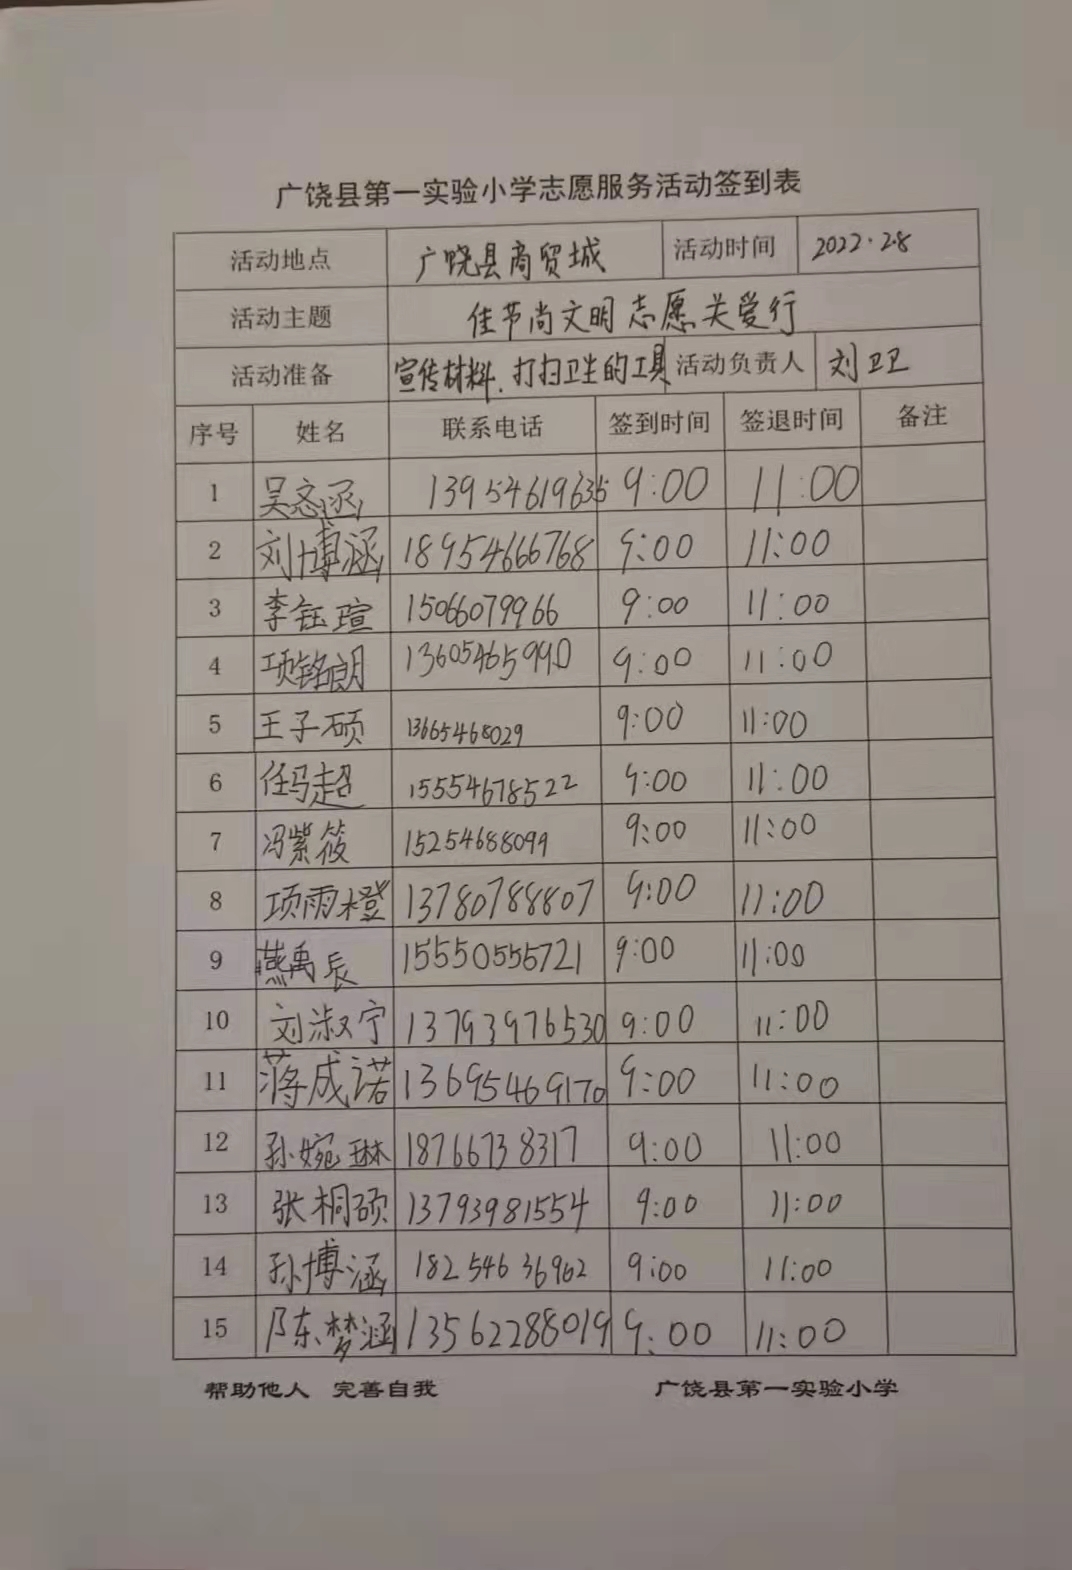 广饶县第一实验小学志愿服务活动签到表
活动地点 广饶县商贸城 活动时间 2022.2.8
活动主题 佳节尚文明 志愿关爱行
活动准备 宣传材料、打扫卫生的工具 活动负责人 刘卫卫
序号 姓名 联系电话 签到时间 签退时间 备注
1 13954619635 9:00 11:00
2 刘博涵 18954666768 9:00 11:00
3 李钰瑄 15066079966 9:00 11:00
4 项铭朗 13605465990 9:00 11:00
5 王子硕 13665468029 9:00 11:00
6 任马超 15554678522 9:00 11:00
7 冯紫筱 15254688099 9:00 11:00
8 项雨橙 13780788807 9:00 11:00
9 燕禹辰 15550555721 9:00 11:00
10 刘淑宁 13793976530 9:00 11:00
11 蒋成诺 13695469170 9:00 11:00
12 孙婉琳 18766738317 9:00 11:00
13 张桐硕 13793981554 9:00 11:00
14 孙博涵 18254636962 9:00 11:00
15 陈梦涵 13562288019 9:00 11:00
帮助他人 完善自我 广饶县第一实验小学